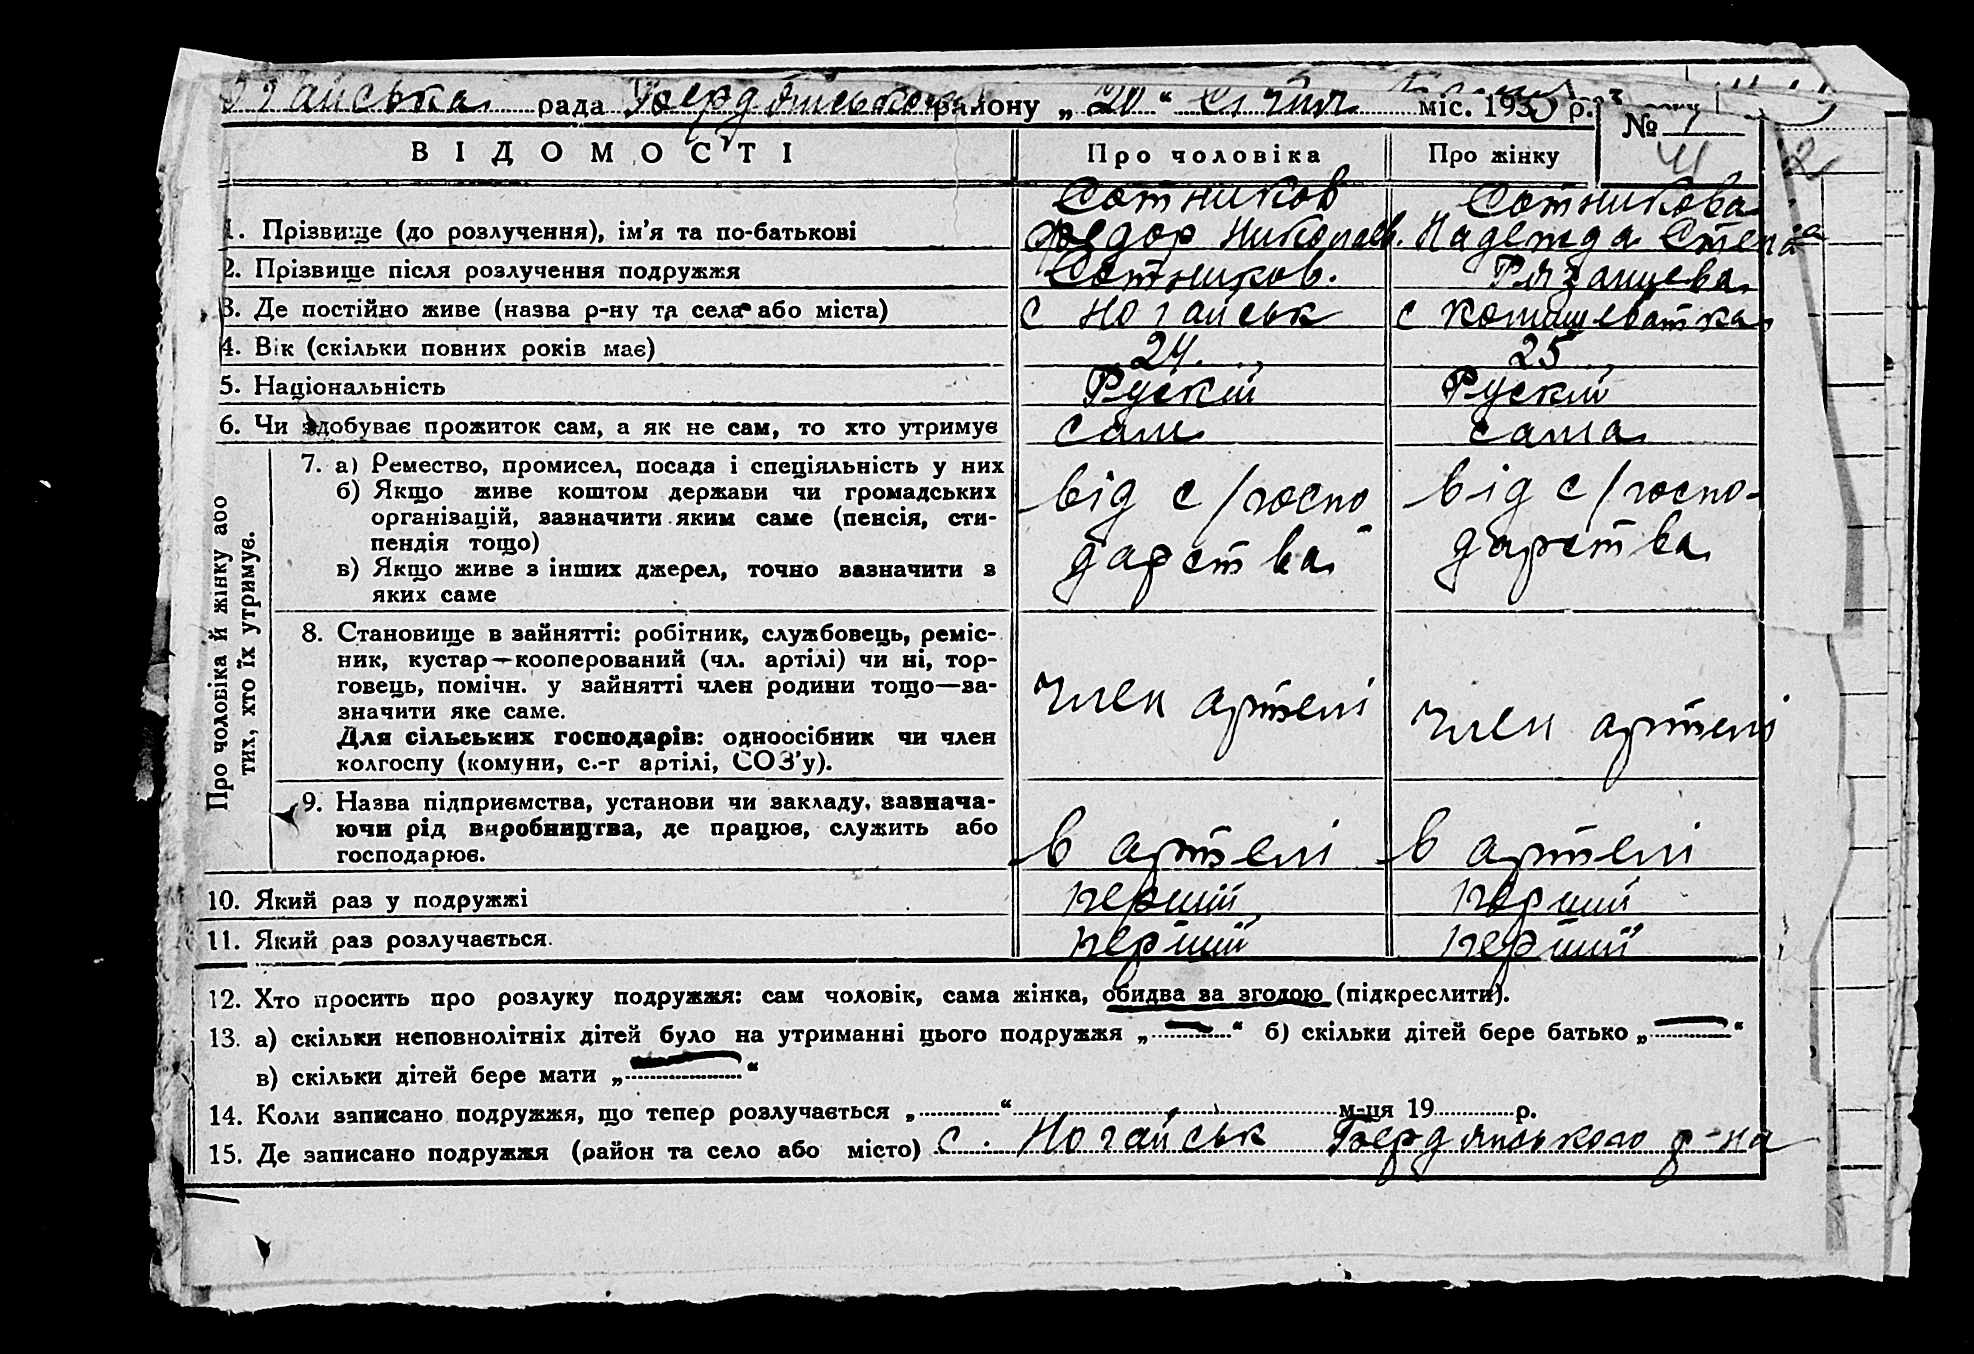 гайська рада Бердянського району „ 20 “ січня міс. 193 р.
№
ВІДОМОСТІ Про чоловіка Про жінку
Сотников Сотникова
1. Прізвище (до розлучення), ім’я та по-батькові Федор Николаев. Надежда Степа
2. Прізвище після розлучення подружжя Сотников. Рязанцева
3. Де постійно живе (назва р-ну та села або міста) с Ногайськ с Комишеватка
4. Вік (скільки повних років має) 24 25
5. Національність Рускій Рускій
6. Чи здобуває прожиток сам, а як не сам, то хто утримує сам сама
Про чоловіка й жінку або тих, хто їх утримує.
7. а) Ремество, промисел, посада і спеціяльність у них
б) Якщо живе коштом держави чи громадських
організацій, зазначити яким саме (пенсія, сти-
пендія тощо)
в) Якщо живе з інших джерел, точно зазначити з
яких саме
від с/госпо
дарства
від с/госпо-
дарства
8. Становище в зайнятті: робітник, службовець, реміс-
ник, кустар—кооперований (чл. артілі) чи ні, тор-
говець, помічн. у зайнятті член родини тощо—за-
значити яке саме.
Для сільських господарів: одноосібник чи член
колгоспу (комуни, с.-г артілі, СОЗ’у).
член артелі член артелі
9. Назва підприємства, установи чи закладу, зазнача-
ючи рід виробництва, де працює, служить або
господарює.
в артелі в артелі
10. Який раз у подружжі перший перший
11. Який раз розлучається. перший перший
12. Хто просить про розлуку подружжя: сам чоловік, сама жінка, обидва за згодою (підкреслити).
13. а) скільки неповнолітніх дітей було на утриманні цього подружжя „ — “ б) скільки дітей бере батько „ — “
в) скільки дітей бере мати „ — “
14. Коли записано подружжя, що тепер розлучається „ “ м-ця 19 р.
15. Де записано подружжя (район та село або місто) с. Ногайськ Бердянського р-на